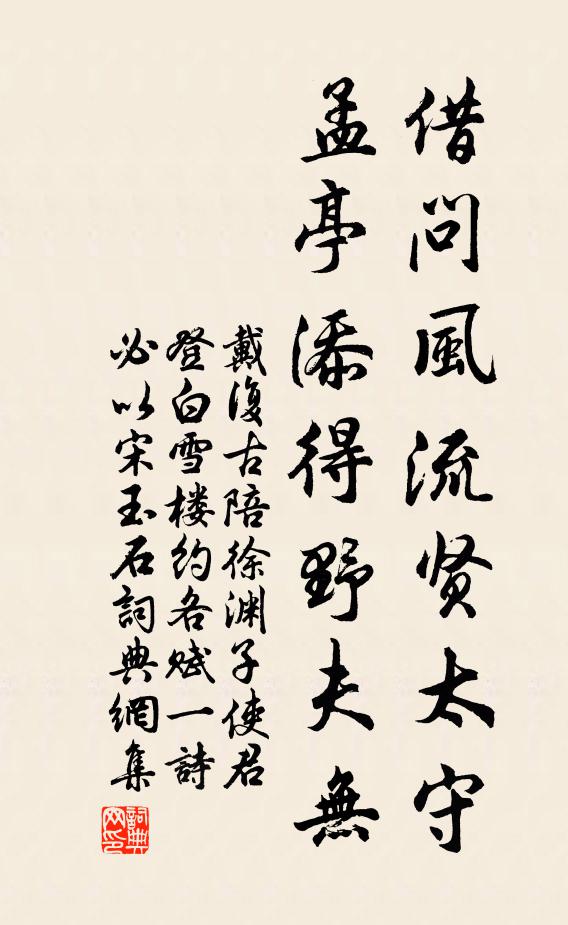 借问風流贤太守
孟亭添得野夫無
戴復古陪徐渊子使君
登白雪楼約各赋一詩
必以宋玉石詞典網集
詞典
网印